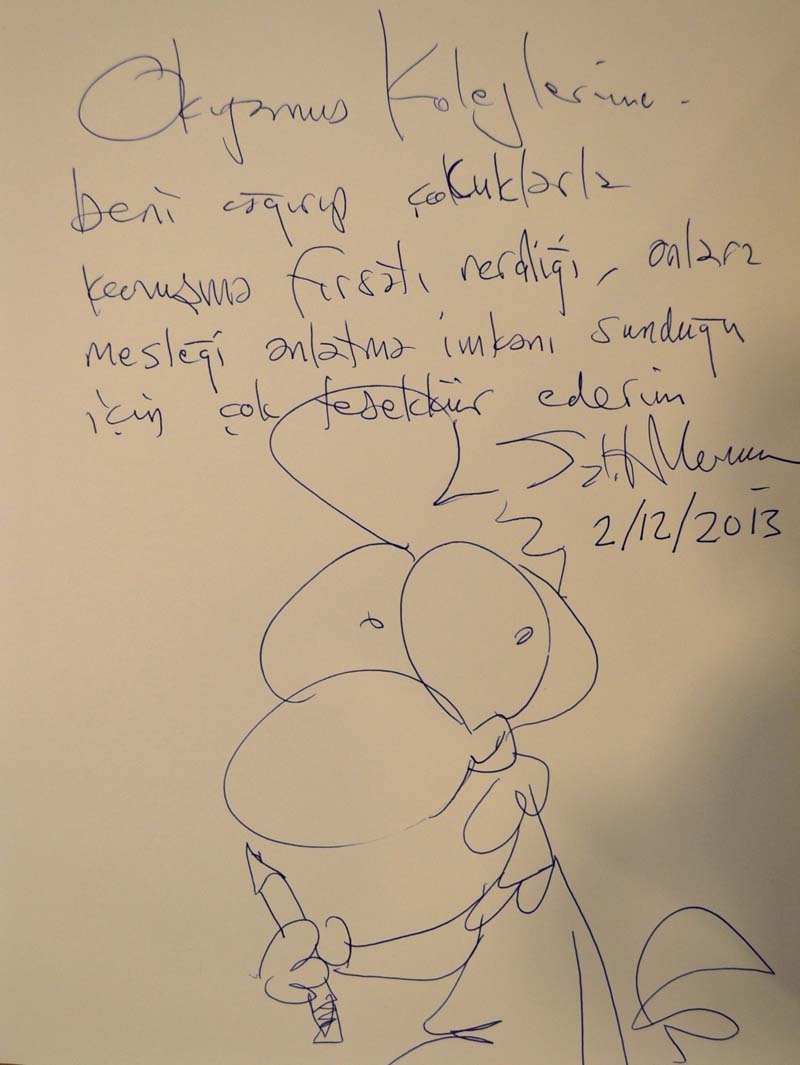 Okyanus Kolejlerine.
beni çağırıp çocuklarla
konuşma fırsatı verdiği, onlara
mesleği anlatma imkanı sunduğu
için çok teşekkür ederim
2/12/2013